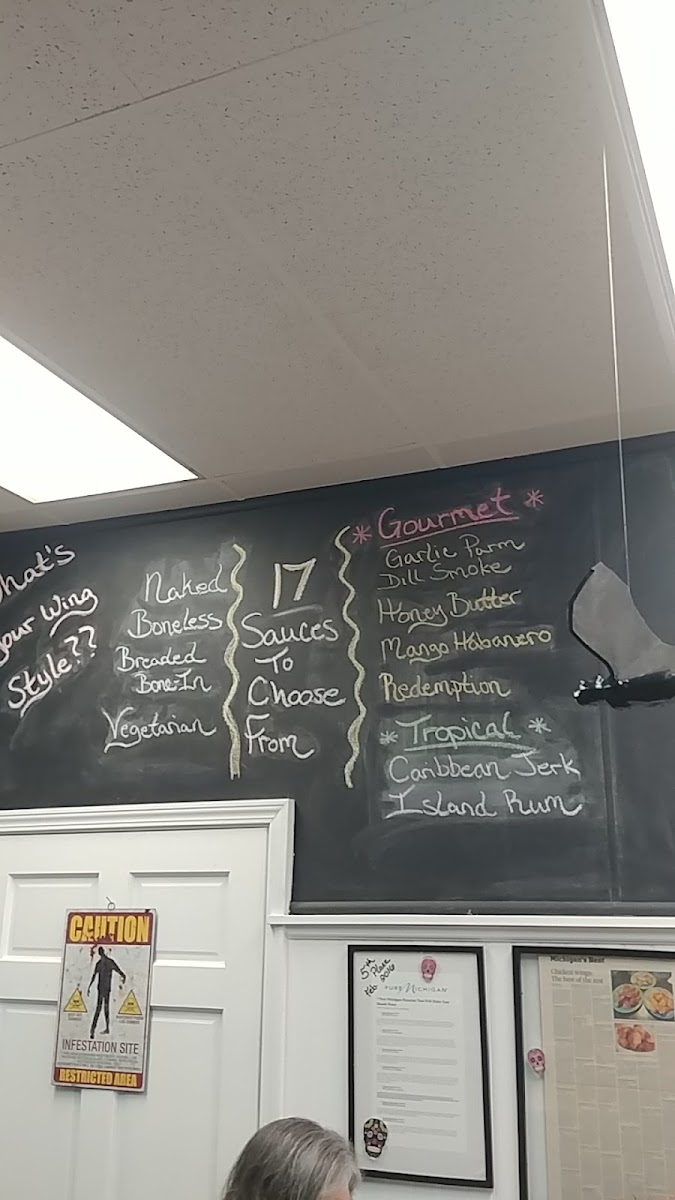 hat's
your Wing
Style??
Naked
Boneless
Breaded
Bone-In
Vegetarian
17
Sauces
To
Choose
From
*Gourmet*
Garlic Parm
Dill Smoke
Honey Butter
Mango Habanero
Redemption
*Tropical*
Caribbean Jerk
Island Rum
CAUTION
INFESTATION SITE
RESTRICTED AREA
5th Place
Feb 2016
PURE MICHIGAN
Michigan's Best
Chicken wings:
The best of the rest